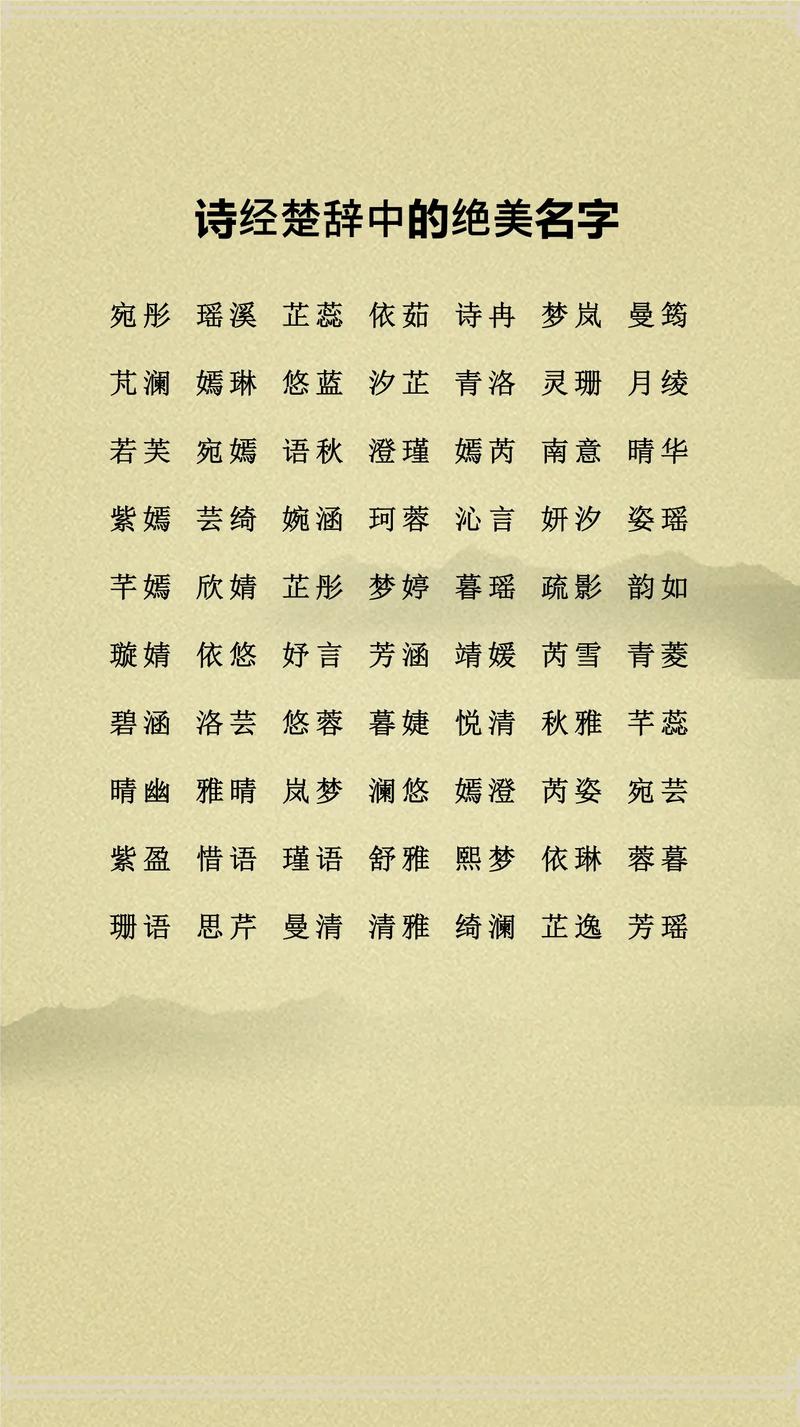 诗经楚辞中的绝美名字
宛彤 瑶溪 芷蕊 依茹 诗冉 梦岚 曼筠
芃澜 嫣琳 悠蓝 汐芷 青洛 灵珊 月绫
若芙 宛嫣 语秋 澄瑾 嫣芮 南意 晴华
紫嫣 芸绮 婉涵 珂蓉 沁言 妍汐 姿瑶
芊嫣 欣婧 芷彤 梦婷 暮瑶 疏影 韵如
璇婧 依悠 妤言 芳涵 靖媛 芮雪 青菱
碧涵 洛芸 悠蓉 暮婕 悦清 秋雅 芊蕊
晴幽 雅晴 岚梦 澜悠 嫣澄 芮姿 宛芸
紫盈 惜语 瑾语 舒雅 熙梦 依琳 蓉暮
珊语 思芹 曼清 清雅 绮澜 芷逸 芳瑶